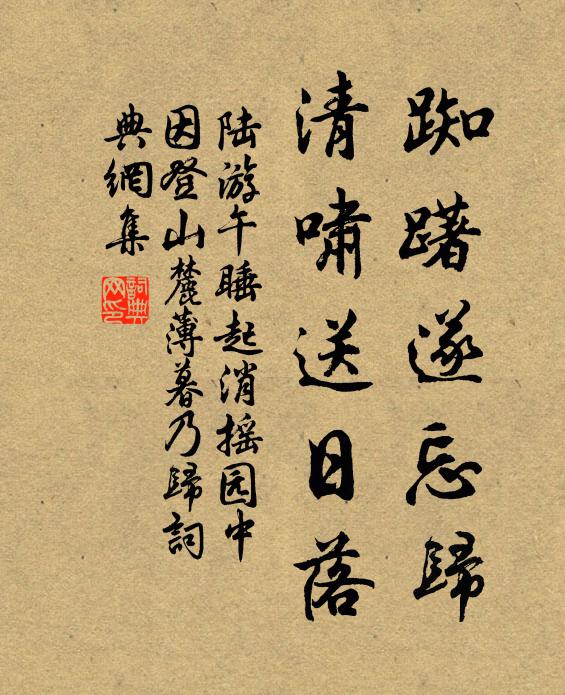 踟躇遂忘歸
清嘯送日落
陆游午睡起消摇园中
因登山麓薄暮乃歸詞
典網集
詞典
网印